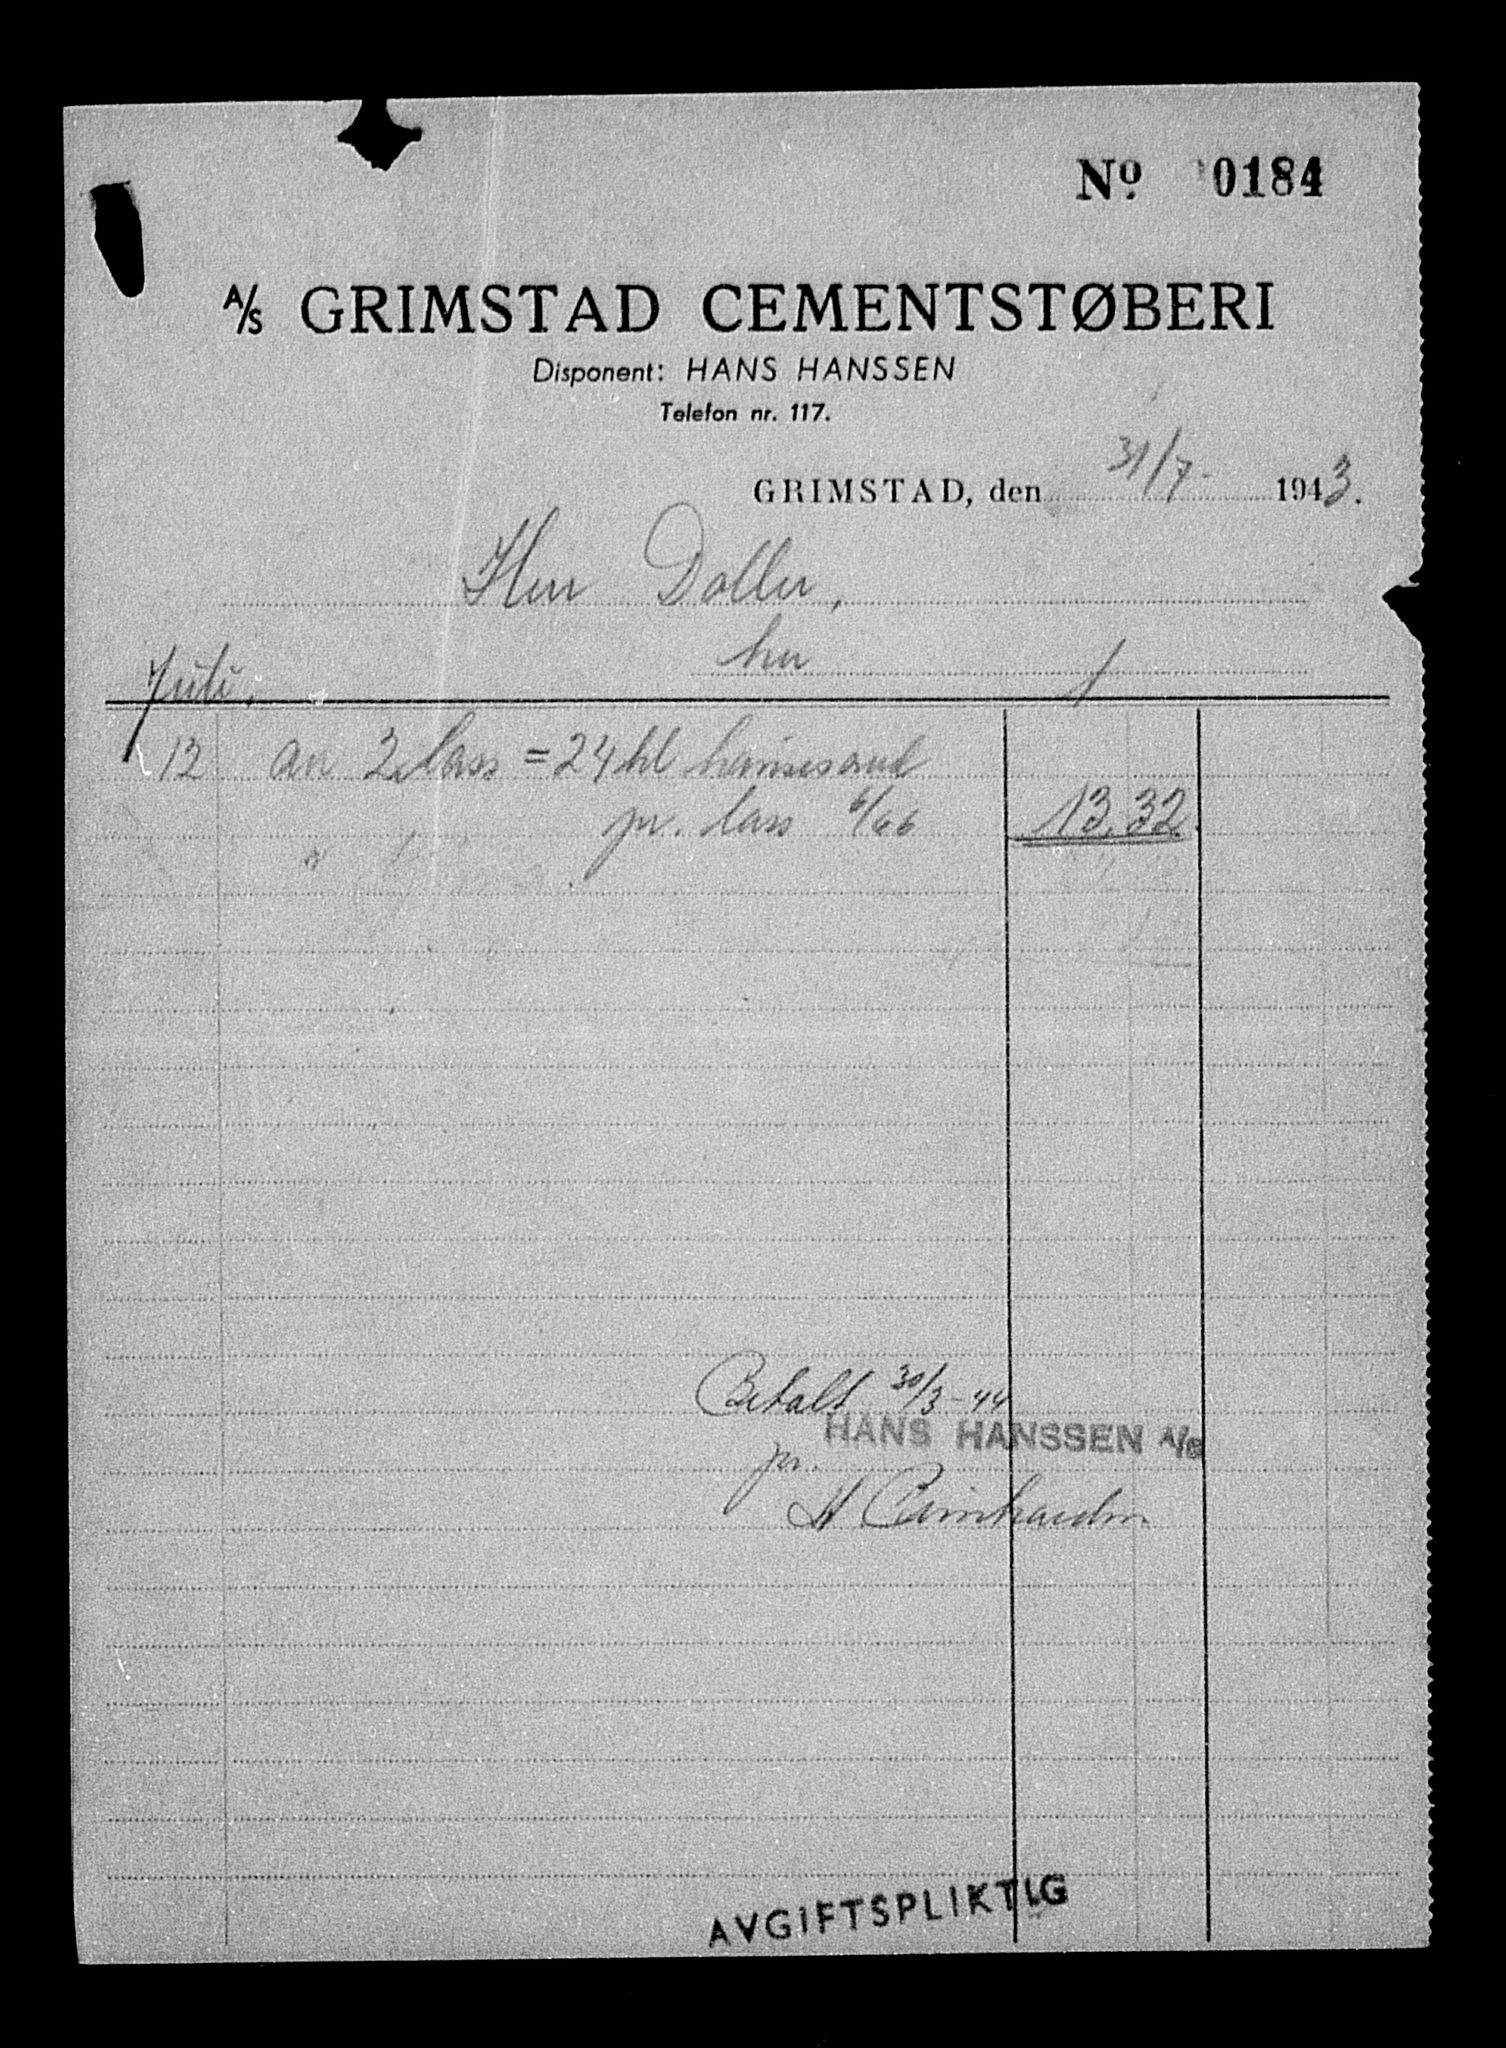 Nº 0184
A/S GRIMSTAD CEMENTSTØBERI
Disponent: HANS HANSSEN
Telefon nr. 117.
GRIMSTAD, den 31/7- 1943.
Herr Doller,
her
Juli.
12 an 2 lass = 24 hl
pr. lass 6/66 13,32
Betalt 30/3-44
HANS HANSSEN A/S
pr.
AVGIFTSPLIKTIG